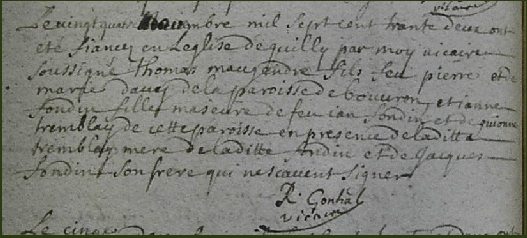 vicaire
Le vingt quatre Novembre mil sept cent trante deux ont
été fiancez en L'eglise de quilly par moy vicaire
soussigné thomas maugendre fils feu pierre et de
marie davy de la paroisse de bouvron, et janne
fondin fille maseure de feu jan fondin et de guionne
tremblay de cette paroisse en presence de laditte
tremblay mere de laditte fondin et de Jacques
fondin son frere qui ne scavent signer
R. Gonthal
vicaire
Le cinq